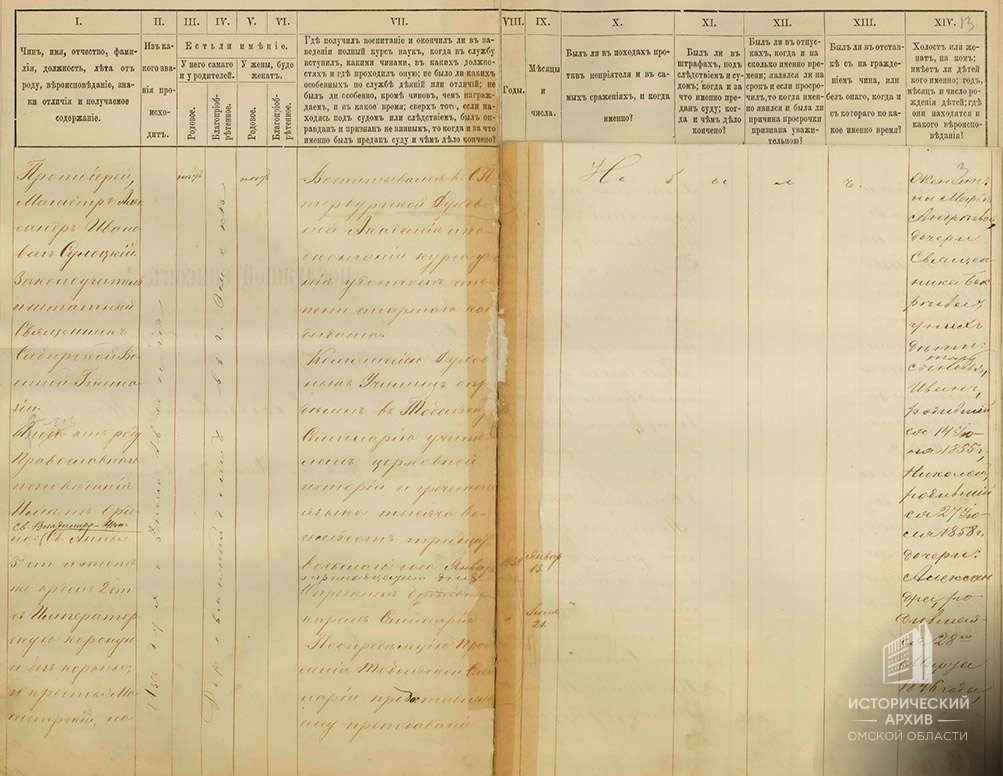 I.
Чинъ, имя, отчество, фами-
лія, должность, лѣта отъ
роду, вѣроисповѣданіе, зна-
ки отличія и получаемое
содержаніе.
II.
Изъ ка-
кого зва-
нія про-
исхо-
дитъ.
III.
IV.
V.
VI.
Есть ли имѣніе.
У него самаго
и у родителей.
У жены, буде
женатъ.
Родовое.
Благопріоб-
рѣтенное.
Родовое.
Благопріоб-
рѣтенное.
VII.
Гдѣ получилъ воспитаніе и окончилъ ли въ за-
веденіи полный курсъ наукъ, когда въ службу
вступилъ, какими чинами, въ какихъ должнос-
тяхъ и гдѣ проходилъ оную; не было ли какихъ
особенныхъ по службѣ дѣяній или отличій; не
былъ ли особенно, кромѣ чиновъ, чѣмъ награж-
даемъ, и въ какое время; сверхъ того, если на-
ходясь подъ судомъ или слѣдствіемъ, былъ оп-
равданъ и признанъ не виннымъ, то когда и за что
именно былъ преданъ суду и чѣмъ дѣло кончено?
VIII.
Годы.
IX.
Мѣсяцы
и
числа.
X.
Былъ ли въ походахъ про-
тивъ непріятеля и въ са-
мыхъ сраженіяхъ, и когда
именно?
XI.
Былъ ли въ
штрафахъ, подъ
слѣдствіемъ и су-
домъ; когда и за
что именно пре-
данъ суду; ког-
да и чѣмъ дѣло
кончено?
XII.
Былъ ли въ отпус-
кахъ, когда и на
сколько именно вре-
мени; являлся ли на
срокъ и если просро-
чилъ, то когда имен-
но явился и была ли
причина просрочки
признана уважи-
тельною?
XIII.
Былъ ли въ отстав-
кѣ съ награжде-
ніемъ чина, или
безъ онаго, когда и
съ котораго по ка-
кое именно время?
XIV.
13
Холостъ или же-
натъ, на комъ;
имѣетъ ли дѣтей
кого именно; годъ,
мѣсяцъ и число рож-
денія дѣтей; гдѣ
они находятся и
какого вѣроиспо-
вѣданія?
Протоіерей,
Магистръ Алек
сандръ Ивано
вичъ Сулоцкій
Законоучитель
и штатный
Священникъ
Сибирской Во
енной Гимна
зіи.
отъ роду
Православнаго
исповѣданія
Имѣетъ орде
Св. Владиміра
на: Св. Анны
3й ст и тотъ
же орденъ 2й ст
съ Император
скую короною
и безъ короны,
и крестъ Ма
гистерскій, по
Изъ духовнаго званія
Деревянный домъ въ г. Омскѣ
Воспитывался въ С.П
тербургской Духов
ной Академіи и по
окончаніи курса уче
нія удостоенъ сте
пени старшаго кан
дидата.
Коммисіею Духов
ныхъ Училищъ опре
дѣленъ въ Тобольскую
Семинарію учите
лемъ церковной
исторіи и греческаго
языка тысяча во
семьсотъ тридцать
восьмаго года Января
тринадцатаго дня
Семинаріи
Правле
нія Тобольской Сем
наріи предоставлено
ему преподаваніе
1838
Январ
13.
21.
Не былъ.
3
Женатъ
на
Андреевой,
дочери
Священ-
ника
у нихъ
дѣти:
сыновья,
Иванъ,
родивший
ся 14 Ію-
ня 1855 г,
Николай,
родивший
ся 27 Ію-
ля 1858 г.
дочери:
Алексан
дра, ро-
дившая-
ся 28го
Марта
года,
ИСТОРИЧЕСКИЙ
АРХИВ
ОМСКОЙ ОБЛАСТИ